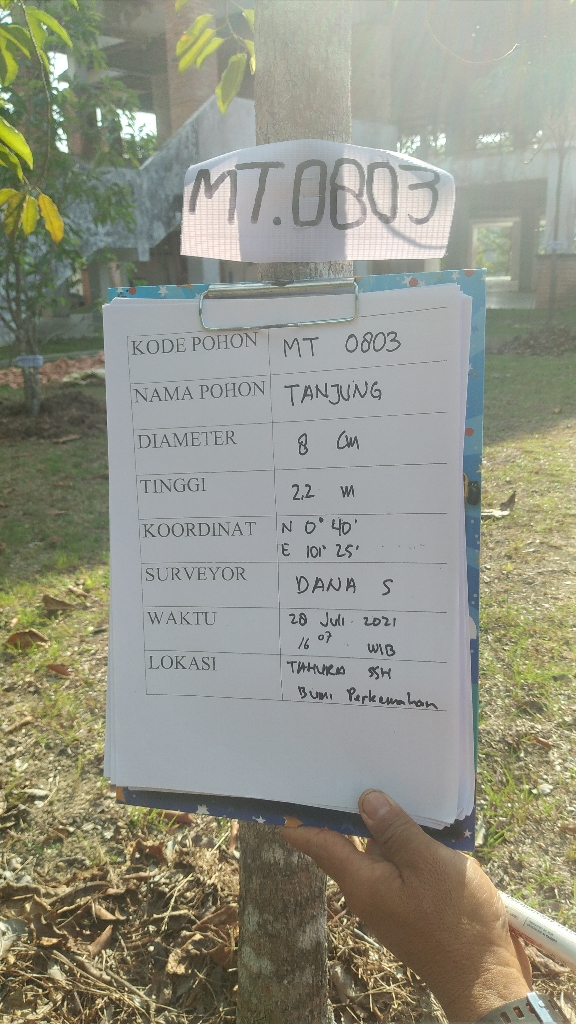 MT.0803
KODE POHON MT 0803
NAMA POHON TANJUNG
DIAMETER 8 cm
TINGGI 2,2 m
KOORDINAT N 0° 40'
E 101° 25'
SURVEYOR DANA S
WAKTU 28 Juli 2021
16 07 WIB
LOKASI TAHURA SSH
Bumi Perkemahan